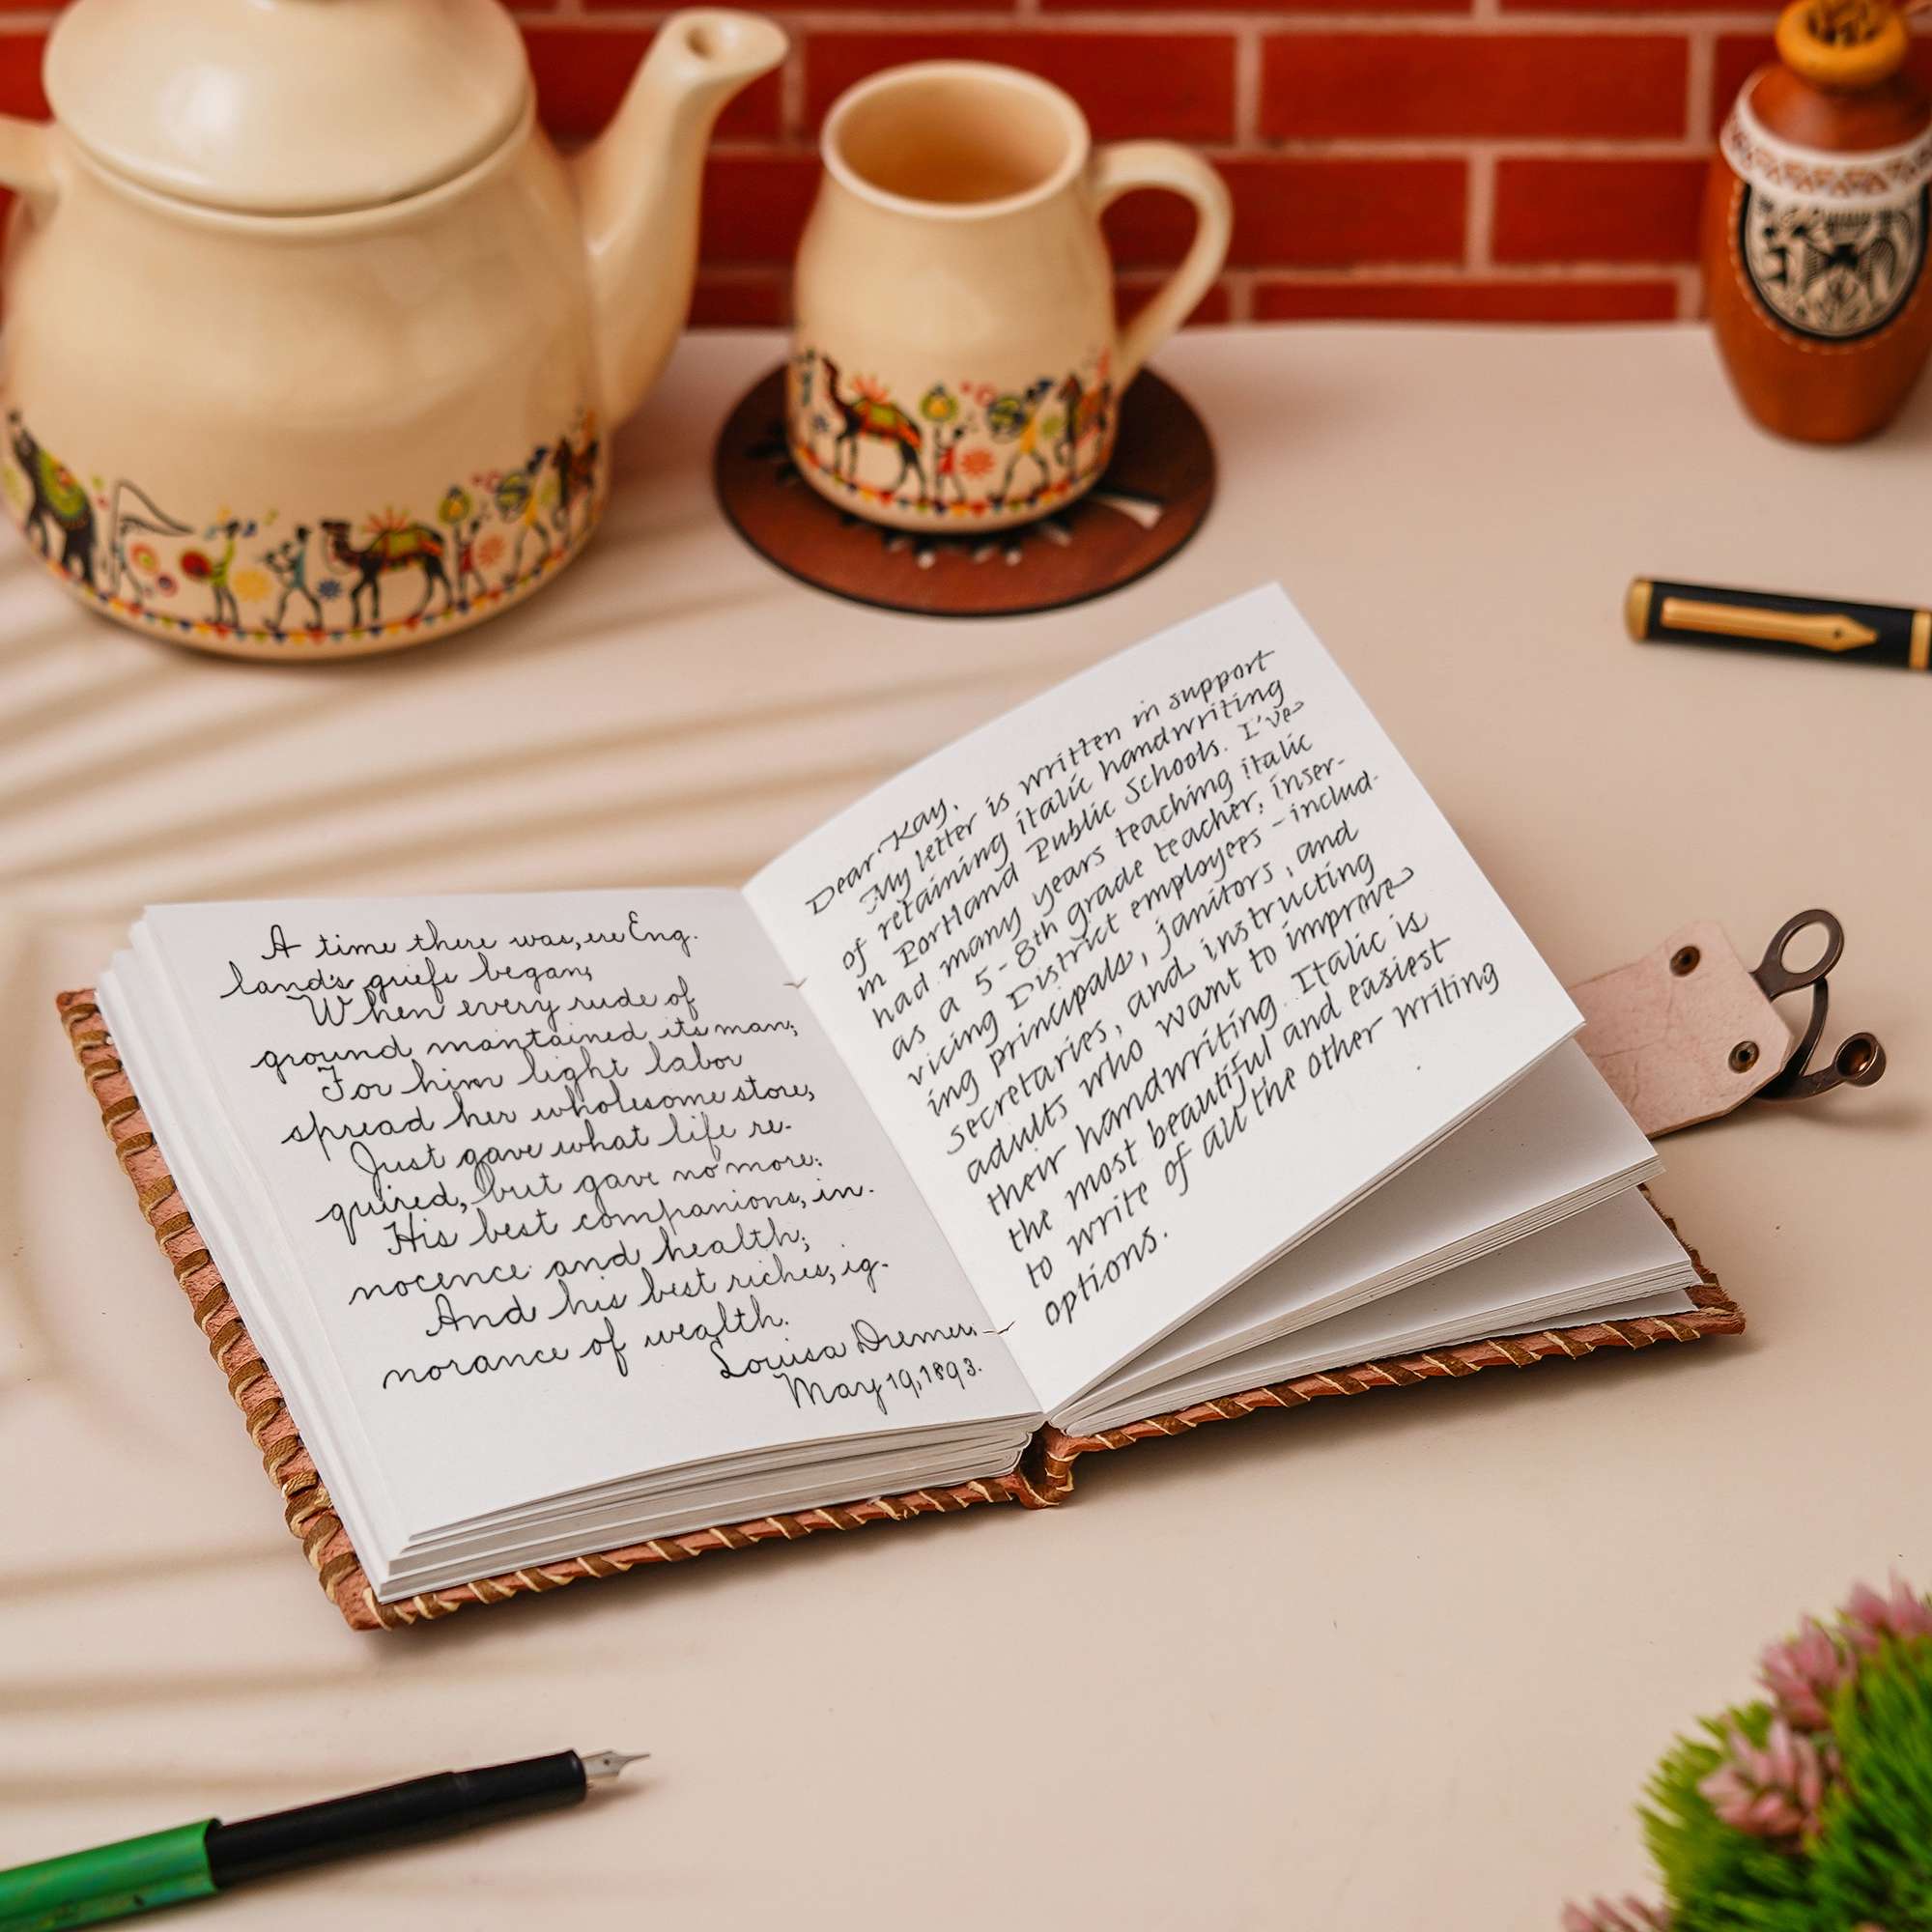 A time there was, ere Eng.
land's griefs began,
When every rude of
ground maintained its man;
For him light labor
spread her wholesome store,
Just gave what life re-
quired, but gave no more:
His best companions, in-
nocence and health;
And his best riches, ig-
norance of wealth.
Louisa Diemer.
May 19, 1893.
Dear Kay,
My letter is written in support
of retaining italic handwriting
in Portland Public Schools. I've
had many years teaching italic
as a 5-8th grade teacher, inser-
vicing District employees - includ-
ing principals, janitors, and
secretaries, and instructing
adults who want to improve
their handwriting. Italic is
the most beautiful and easiest
to write of all the other writing
options.